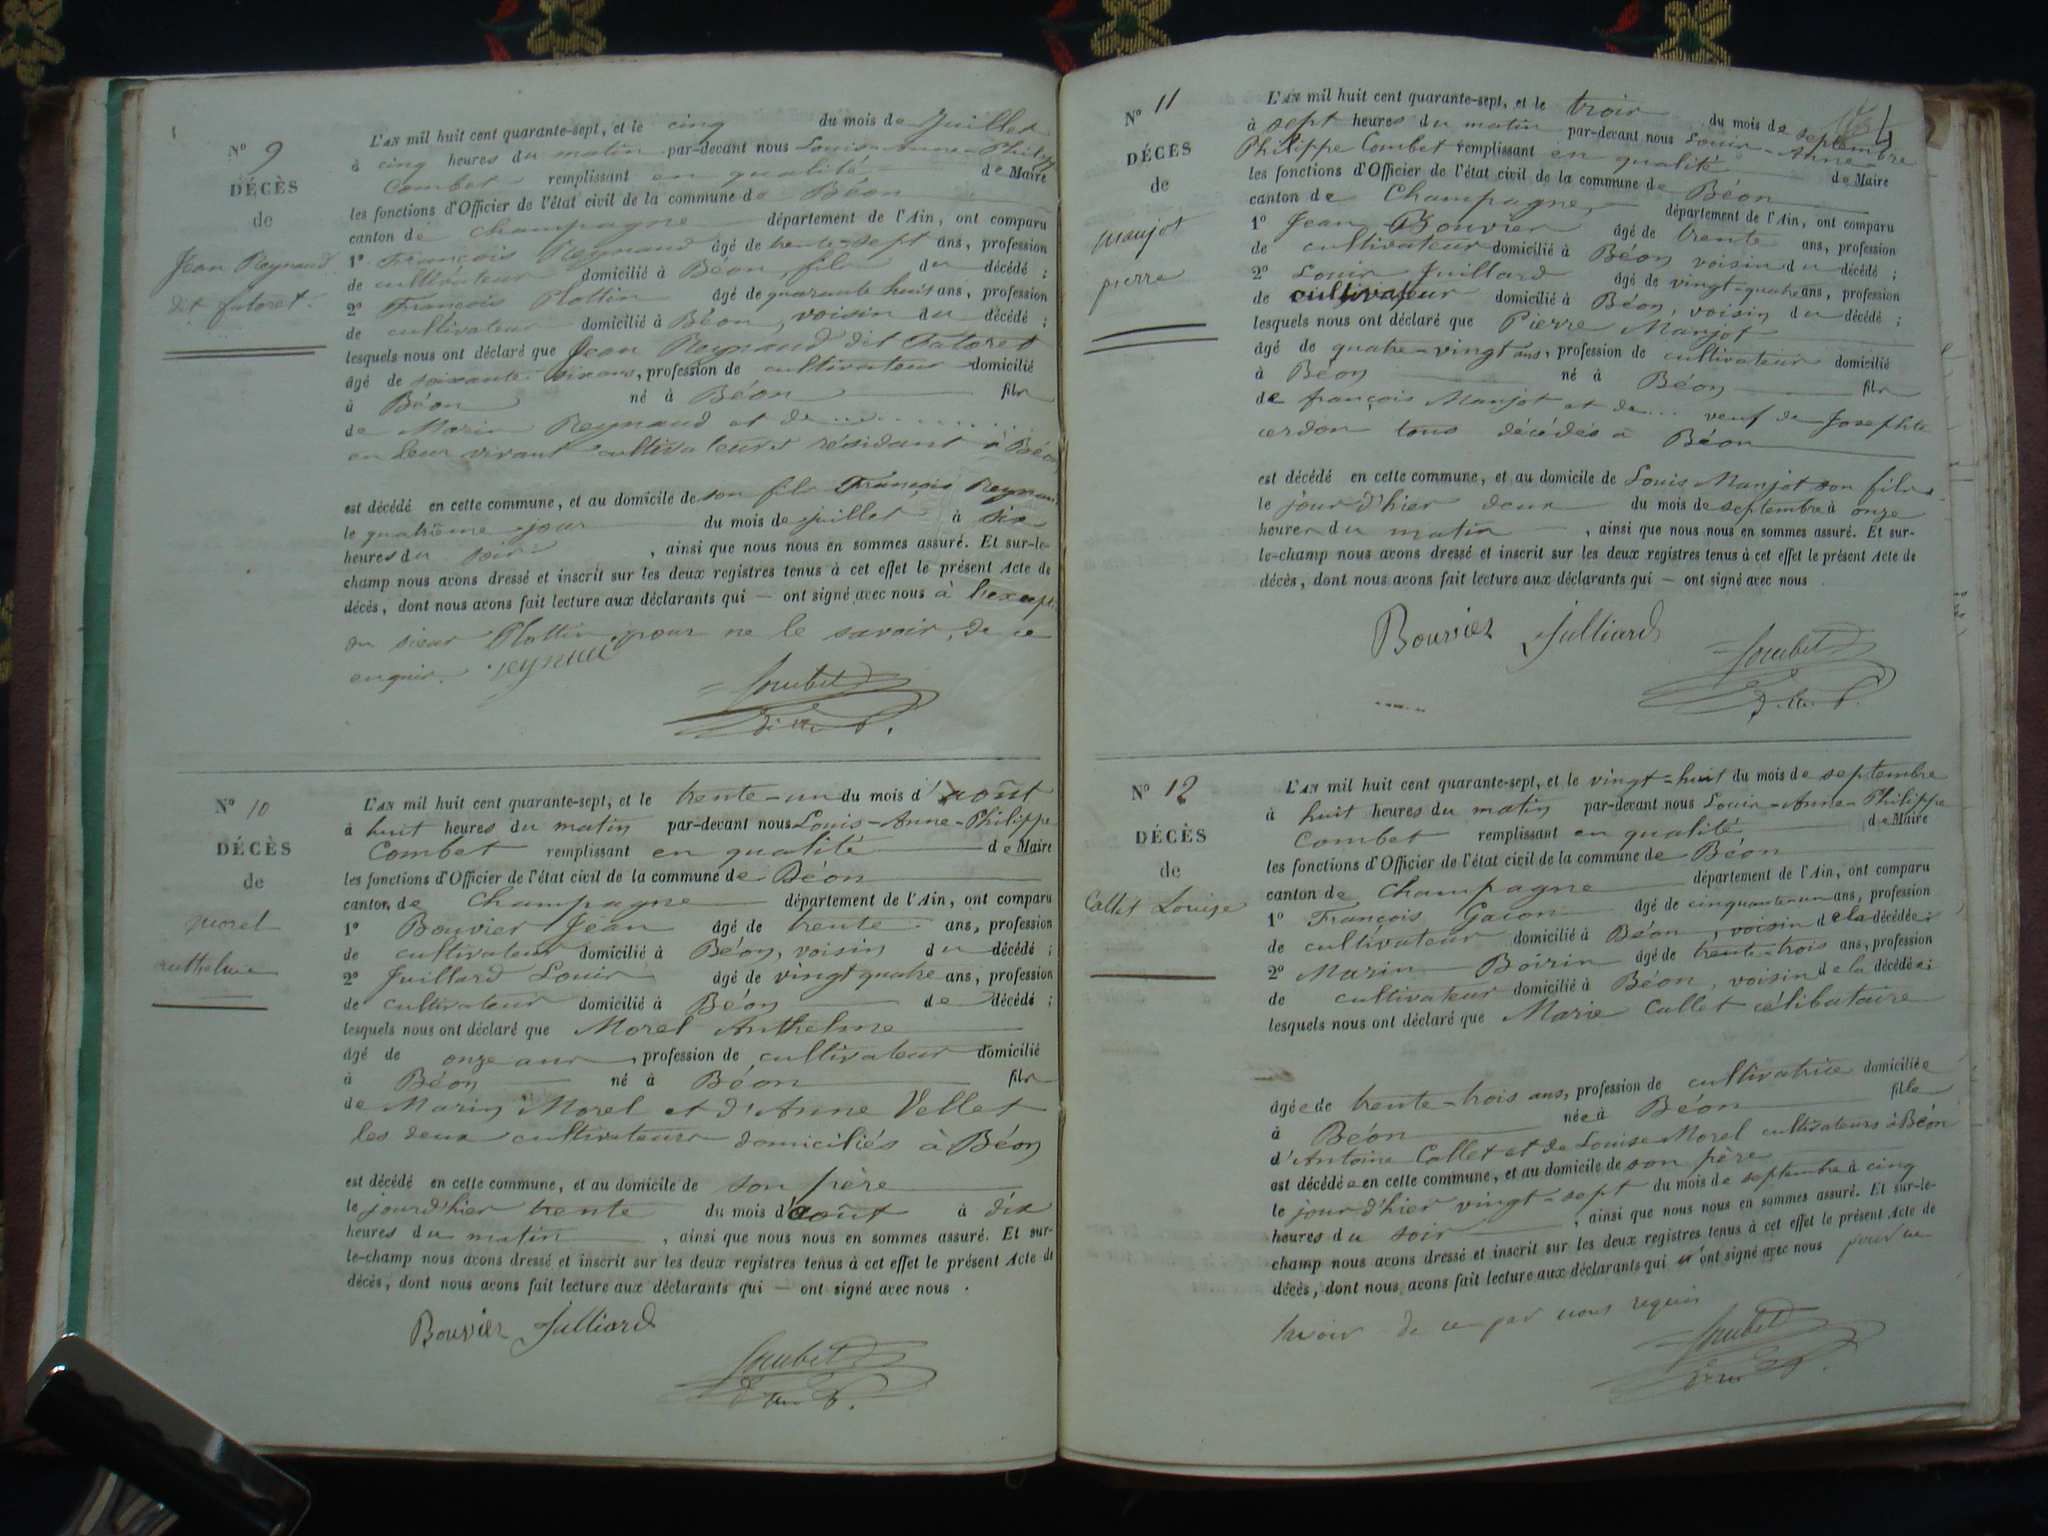 Nº 9
DÉCÈS
de
Jean Reynaud
dit fatoret.
L'AN mil huit cent quarante-sept, et le cinq du mois de Juillet
à cinq heures du matin par-devant nous Louis-Anne-Philippe
Combet remplissant en qualité de Maire
les fonctions d'Officier de l'état civil de la commune de Béon
canton de Champagne département de l'Ain, ont comparu
1º François Reynaud âgé de trente-sept ans, profession
de cultivateur domicilié à Béon, fils du décédé ;
2º François Plottin âgé de quarante huit ans, profession
de cultivateur domicilié à Béon, voisin du décédé ;
lesquels nous ont déclaré que Jean Reynaud dit Fatoret
âgé de soixante six ans, profession de cultivateur domicilié
à Béon né à Béon fils
de Marin Reynaud et de ......
en leur vivant cultivateurs résidant à Béon
est décédé en cette commune, et au domicile de son fils François Reynaud
le quatrième jour du mois de juillet à six
heures du soir , ainsi que nous nous en sommes assuré. Et sur-le-
champ nous avons dressé et inscrit sur les deux registres tenus à cet effet le présent Acte de
décès, dont nous avons fait lecture aux déclarants qui — ont signé avec nous à l'except
du sieur Plottin, pour ne le savoir, de ce
enquis. reynaud
Combet
Nº 10
DÉCÈS
de
morel
anthelme
L'AN mil huit cent quarante-sept, et le trente-un du mois d'août
à huit heures du matin par-devant nous Louis-Anne-Philippe
Combet remplissant en qualité de Maire
les fonctions d'Officier de l'état civil de la commune de Béon
canton de Champagne département de l'Ain, ont comparu
1º Bouvier Jean âgé de trente ans, profession
de cultivateur domicilié à Béon, voisin du décédé ;
2º Juillard Louis âgé de vingt quatre ans, profession
de cultivateur domicilié à Béon de décédé ;
lesquels nous ont déclaré que Morel Anthelme
âgé de onze ans, profession de cultivateur domicilié
à Béon né à Béon fils
de Marin Morel et d'Anne Vellet
les deux cultivateurs domiciliés à Béon
est décédé en cette commune, et au domicile de son père
le jour d'hier trente du mois d'août à dix
heures du matin , ainsi que nous nous en sommes assuré. Et sur-
le-champ nous avons dressé et inscrit sur les deux registres tenus à cet effet le présent Acte de
décès, dont nous avons fait lecture aux déclarants qui — ont signé avec nous .
Bouvier Julliard
Combet
Nº 11
DÉCÈS
de
manjot
pierre
L'AN mil huit cent quarante-sept, et le trois du mois de septembre
à sept heures du matin par-devant nous Louis-Anne-
Philippe Combet remplissant en qualité de Maire
les fonctions d'Officier de l'état civil de la commune de Béon
canton de Champagne département de l'Ain, ont comparu
1º Jean Bouvier âgé de trente ans, profession
de cultivateur domicilié à Béon voisin du décédé ;
2º Louis Juillard âgé de vingt-quatre ans, profession
de cultivateur domicilié à Béon, voisin du décédé ;
lesquels nous ont déclaré que Pierre Manjot
âgé de quatre-vingt ans, profession de cultivateur domicilié
à Béon né à Béon fils
de françois Manjot et de ... veuf de Josephte
cerdon tous décédés à Béon
est décédé en cette commune, et au domicile de Louis Manjot son fils
le jour d'hier deux du mois de septembre à onze
heures du matin , ainsi que nous nous en sommes assuré. Et sur-
le-champ nous avons dressé et inscrit sur les deux registres tenus à cet effet le présent Acte de
décès, dont nous avons fait lecture aux déclarants qui — ont signé avec nous .
Bouvier Julliard
Combet
Nº 12
DÉCÈS
de
Callet Louise
L'AN mil huit cent quarante-sept, et le vingt-huit du mois de septembre
à huit heures du matin par-devant nous Louis-Anne-Philippe
Combet remplissant en qualité de Maire
les fonctions d'Officier de l'état civil de la commune de Béon
canton de Champagne département de l'Ain, ont comparu
1º François Gacon âgé de cinquante-un ans, profession
de cultivateur domicilié à Béon, voisin de la décédée ;
2º Marin Boirin âgé de trente-trois ans, profession
de cultivateur domicilié à Béon, voisin de la décédée ;
lesquels nous ont déclaré que Marie Callet célibataire
âgée de trente-trois ans, profession de cultivatrice domiciliée
à Béon née à Béon fille
d'Antoine Callet et de Louise Morel cultivateurs à Béon
est décédée en cette commune, et au domicile de son père
le jour d'hier vingt-sept du mois de septembre à cinq
heures du soir , ainsi que nous nous en sommes assuré. Et sur-le-
champ nous avons dressé et inscrit sur les deux registres tenus à cet effet le présent Acte de
décès, dont nous avons fait lecture aux déclarants qui n'ont signé avec nous pour ne
savoir de ce par nous requis
Combet